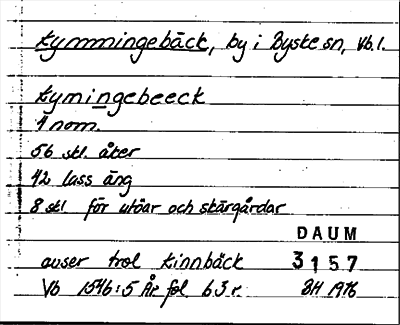 Kymmingebäck, by i Byske sn, Vb. l.
Kymingebeeck
4 nom.
56 skl. åker
42 lass äng
8 skl för utöar och skärgårdar
DAUM
avser trol Kinnbäck 3157
Vb 1546:5 År fol 63 r. BH 1976